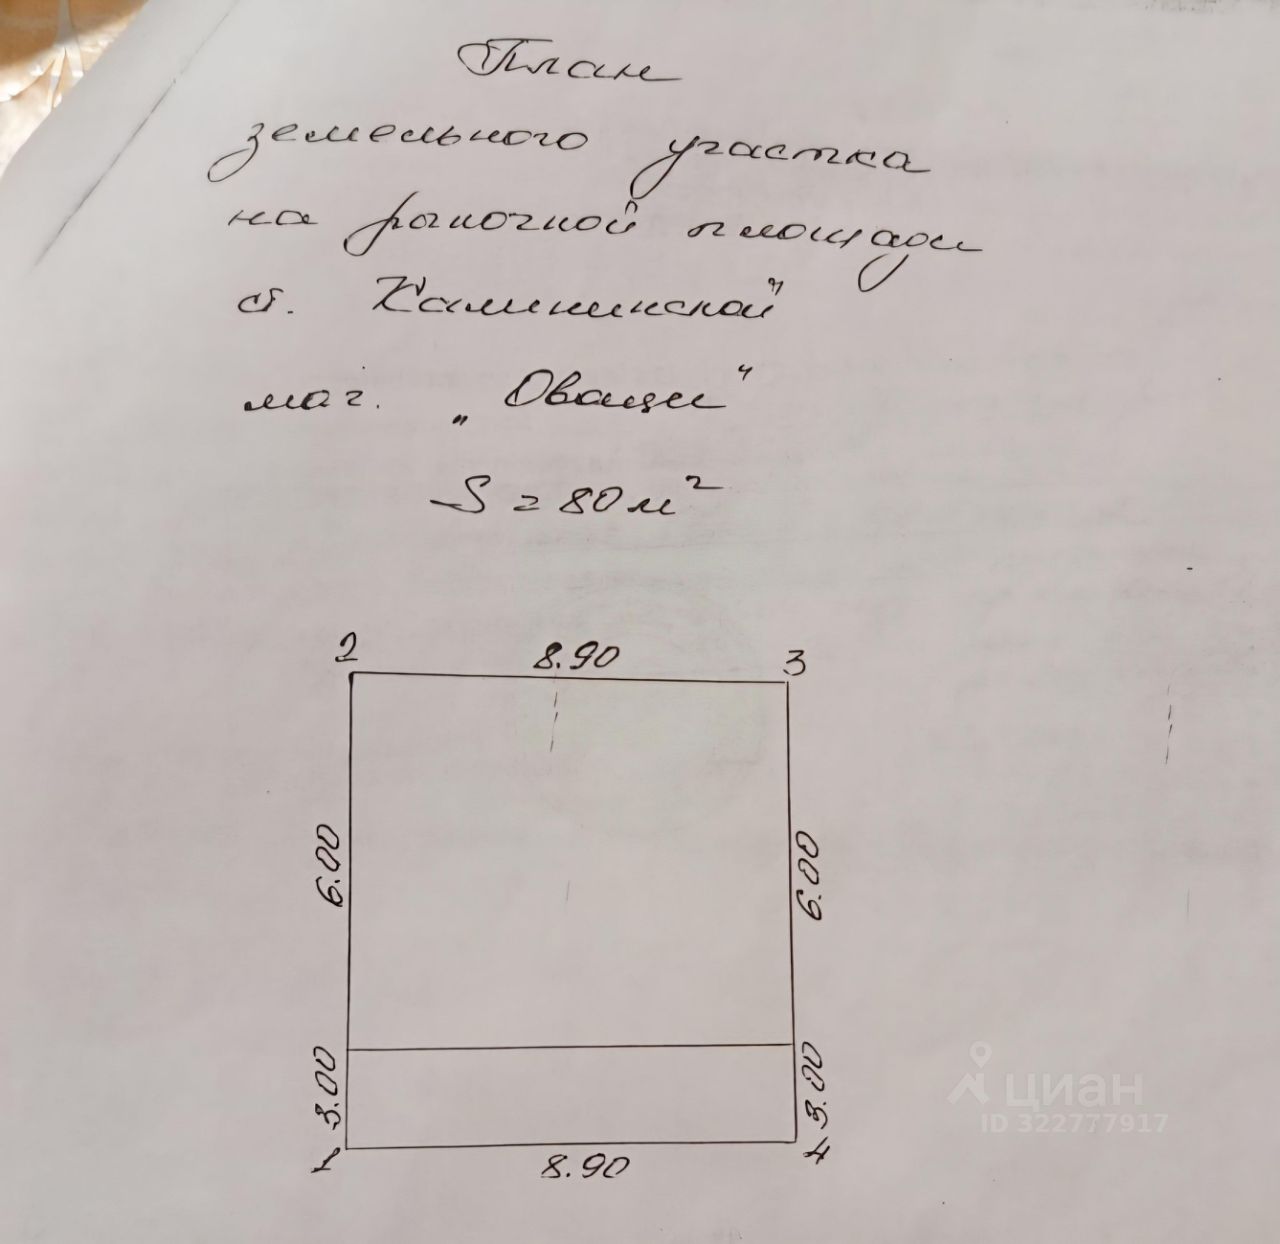 План
земельного участка
на рыночной площади
ст. Калининской
маг. „Оваци"
S = 80 м²
2
8.90
3
6.00
6.00
3.00
3.00
1
8.90
4
циан
ID 322777917